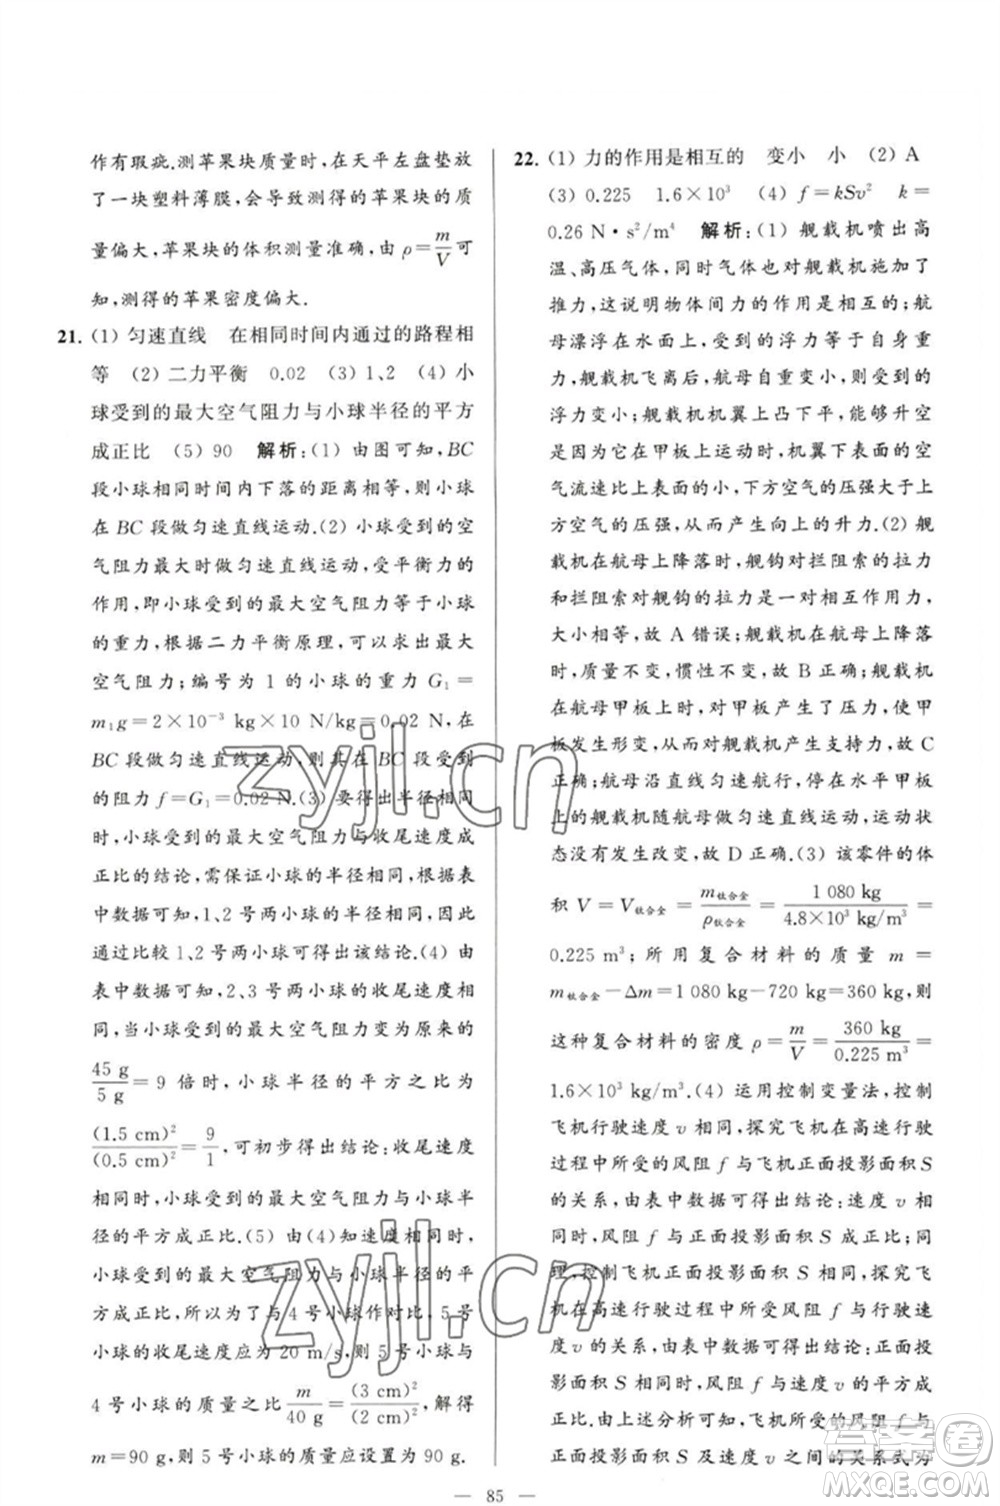 作有瑕疵.测苹果块质量时,在天平左盘垫放
了一块塑料薄膜,会导致测得的苹果块的质
量偏大,苹果块的体积测量准确,由ρ=m/V可
知,测得的苹果密度偏大.
21. (1) 匀速直线 在相同时间内通过的路程相
等 (2) 二力平衡 0.02 (3) 1、2 (4) 小
球受到的最大空气阻力与小球半径的平方
成正比 (5) 90 解析:(1) 由图可知,BC
段小球相同时间内下落的距离相等,则小球
在 BC 段做匀速直线运动.(2) 小球受到的空
气阻力最大时做匀速直线运动,受平衡力的
作用,即小球受到的最大空气阻力等于小球
的重力,根据二力平衡原理,可以求出最大
空气阻力;编号为 1 的小球的重力 G₁=
m₁g=2×10⁻³ kg×10 N/kg=0.02 N,在
BC 段做匀速直线运动,则其在 BC 段受到
的阻力 f=G₁=0.02 N.(3) 要得出半径相同
时,小球受到的最大空气阻力与收尾速度成
正比的结论,需保证小球的半径相同,根据表
中数据可知,1、2 号两小球的半径相同,因此
通过比较 1、2 号两小球可得出该结论.(4) 由
表中数据可知,2、3 号小球的收尾速度相
同,当小球受到的最大空气阻力变为原来的
45 g/5 g=9 倍时,小球半径的平方之比为
(1.5 cm)²/(0.5 cm)²=9/1,可初步得出结论:收尾速度
相同时,小球受到的最大空气阻力与小球半
径的平方成正比.(5) 由(4)知速度相同时,
小球受到的最大空气阻力与小球半径的平
方成正比,所以为了与 4 号小球作对比,5 号
小球的收尾速度应为 20 m/s,则 5 号小球与
4 号小球的质量之比m/40 g=(3 cm)²/(2 cm)²,解得
m=90 g,则 5 号小球的质量应设置为 90 g.
22. (1) 力的作用是相互的 变小 小 (2) A
(3) 0.225 1.6×10³ (4) f=kSv² k=
0.26 N·s²/m⁴ 解析:(1) 舰载机喷出高
温、高压气体,同时气体也对舰载机施加了
推力,这说明物体间力的作用是相互的;航
母漂浮在水面上,受到的浮力等于自身重
力,舰载机飞离后,航母自重变小,受到的
浮力变小;舰载机机翼上凸下平,能够升空
是因为它在甲板上运动时,机翼下表面的空
气流速比上表面的小,下方空气的压强大于上
方空气的压强,从而产生向上的升力.(2) 舰
载机在航母上降落时,舰钩对拦阻索的拉力
和拦阻索对舰钩的拉力是一对相互作用力,
大小相等,故 A 错误;舰载机在航母上降落
时,质量不变,惯性不变,故 B 正确;舰载机
在航母甲板上时,对甲板产生了压力,使甲
板发生形变,从而对舰载机产生支持力,故 C
正确;航母沿直线匀速航行,停在水平甲板
上的舰载机随航母做匀速直线运动,运动状
态没有发生改变,故 D 正确.(3) 该零件的体
积 V=V钛合金=m钛合金/ρ钛合金=1 080 kg/4.8×10³ kg/m³=
0.225 m³;所用复合材料的质量 m=
m钛合金−Δm=1 080 kg−720 kg=360 kg,则
这种复合材料的密度 ρ=m/V=360 kg/0.225 m³=
1.6×10³ kg/m³.(4) 运用控制变量法,控制
飞机行驶速度 v 相同,探究飞机在高速行驶
过程中所受的风阻 f 与飞机正面投影面积 S
的关系,由表中数据可得出结论:速度 v 相
同时,风阻 f 与正面投影面积 S 成正比;同
理,控制飞机正面投影面积 S 相同,探究飞
机在高速行驶过程中所受风阻 f 与行驶速
度 v 的关系,由表中数据可得出结论:正面投
影面积 S 相同时,风阻 f 与速度 v 的平方成
正比.由上述分析可知,飞机所受的风阻 f 与
正面投影面积 S 及速度 v 之间的关系式为
— 85 —
zyjl.cn
zyjl.cn
答案圈
MXQE.COM